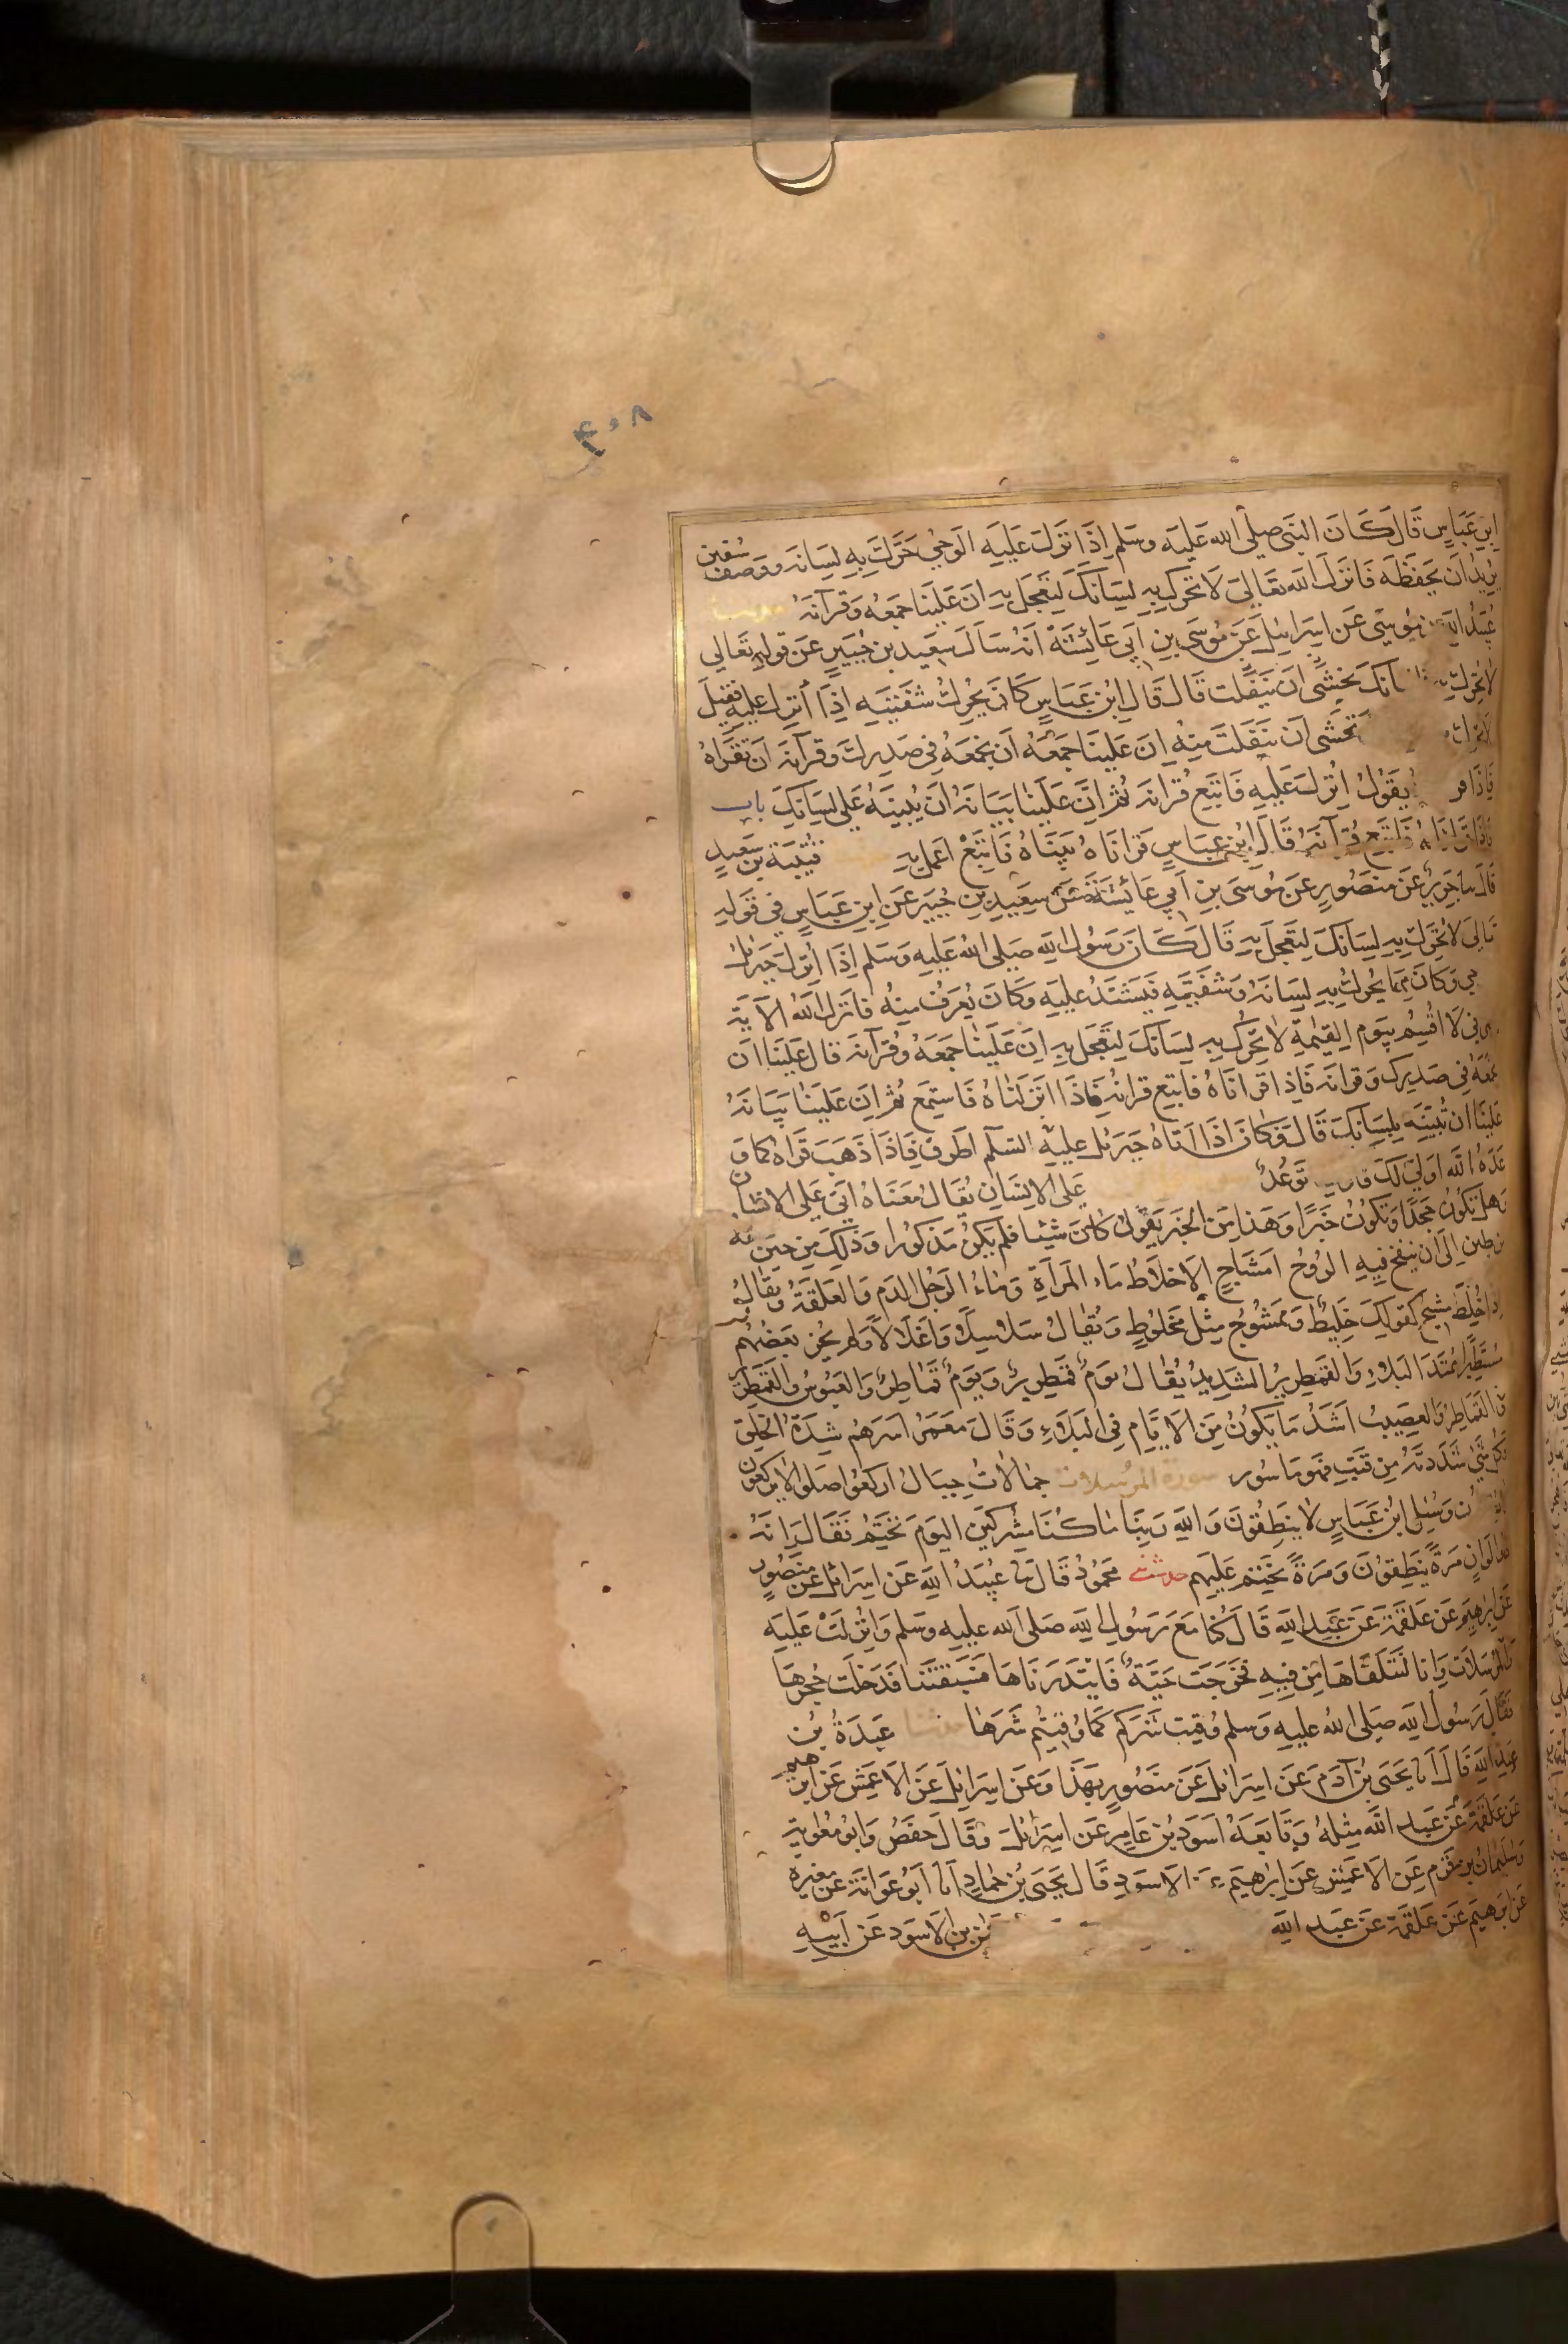 ٤٠٨
ابن عباس قال كان النبي صلى الله عليه وسلم اذا نزل عليه الوحي حرك به لسانه ووصف سفين
يريد ان يحفظه فانزل الله تعالى لا تحرك به لسانك لتعجل به ان علينا جمعه وقرآنه
عبيد الله بن موسى عن اسرائيل عن موسى بن ابي عائشة انه سال سعيد بن جبير عن قوله تعالى
لا تحرك به لسانك يخشى ان يتفلت قال قال ابن عباس كان يحرك شفتيه اذا انزل عليه فقيل
لا تحرك تخشى ان يتفلت منه ان علينا جمعه ان نجمعه في صدرك وقرآنه ان تقراه
فاذا يقول انزل عليه فاتبع قرانه ثم ان علينا بيانه ان نبينه على لسانك باب
فاذا قراناه فاتبع قرآنه قال ابن عباس قراناه بيناه فاتبع اعمل به قتيبة بن سعيد
قال سا جرير عن منصور عن موسى بن ابي عائشة عن سعيد بن جبير عن ابن عباس في قوله
تعالى لا تحرك به لسانك لتعجل به قال كان رسول الله صلى الله عليه وسلم اذا انزل جبريل
وكان مما يحرك به لسانه وشفتيه فيشتد عليه وكان يعرف منه فانزل الله الآية
في لا اقسم بيوم القيمة لا تحرك به لسانك لتعجل به ان علينا جمعه وقرآنه قال علينا ان
نجمعه في صدرك وقرانه فاذا قراناه فاتبع قرانه فاذا انزلناه فاستمع ثم ان علينا بيانه
علينا ان نبينه بلسانك قال وكان اذا اتاه جبريل عليه السلم اطرق فاذا ذهب قراه كما و
عده الله اولى لك توعد على الانسان يقال معناه اتى على الانسان
وهل تكون جحدا وتكون خبرا وهذا من الخبر يقول كان شيئا فلم يكن مذكورا وذلك من حين
من طين الى ان ينفخ فيه الروح امشاج الاخلاط ماء المراة وماء الرجل الدم والعلقة ويقال
اذا خلط مشيج كقولك خليط وممشوج مثل مخلوط ويقال سلاسلا واغلالا ولم يجز بعضهم
مستطيرا ممتد البلاء والقمطرير الشديد يقال يوم قمطرير ويوم قماطر والعبوس والقمطرير
والقماطر والعصيب اشد ما يكون من الايام في البلاء وقال معمر اسرهم شدة الخلق
وكل شئ شددته من قتب فهو ماسور سورة المرسلات جمالات حبال اركعوا صلوا لا يركعون
وسئل ابن عباس لا ينطقون والله ربنا ما كنا مشركين اليوم نختم فقال انه
ذو الوان مرة ينطقون ومرة يختم عليهم حدثني محمود قال سا عبيد الله عن اسرائيل عن منصور
عن ابرهيم عن علقمة عن عبد الله قال كنا مع رسول الله صلى الله عليه وسلم وانزلت عليه
والمرسلات وانا لنتلقاها من فيه فخرجت حية فابتدرناها فسبقتنا فدخلت جحرها
فقال رسول الله صلى الله عليه وسلم وقيت شركم كما وقيتم شرها حدثنا عبدة بن
عبد الله قال انا يحيى بن آدم عن اسرائيل عن منصور بهذا وعن اسرائيل عن الاعمش عن ابرهيم
عن علقمة عن عبد الله مثله وتابعه اسود بن عامر عن اسرائيل وقال حفص وابو معوية
وسليمان بن قرم عن الاعمش عن ابرهيم الاسود قال يحيى بن حماد انا ابو عوانة عن مغيرة
عن ابرهيم عن علقمة عن عبد الله بن الاسود عن ابيه